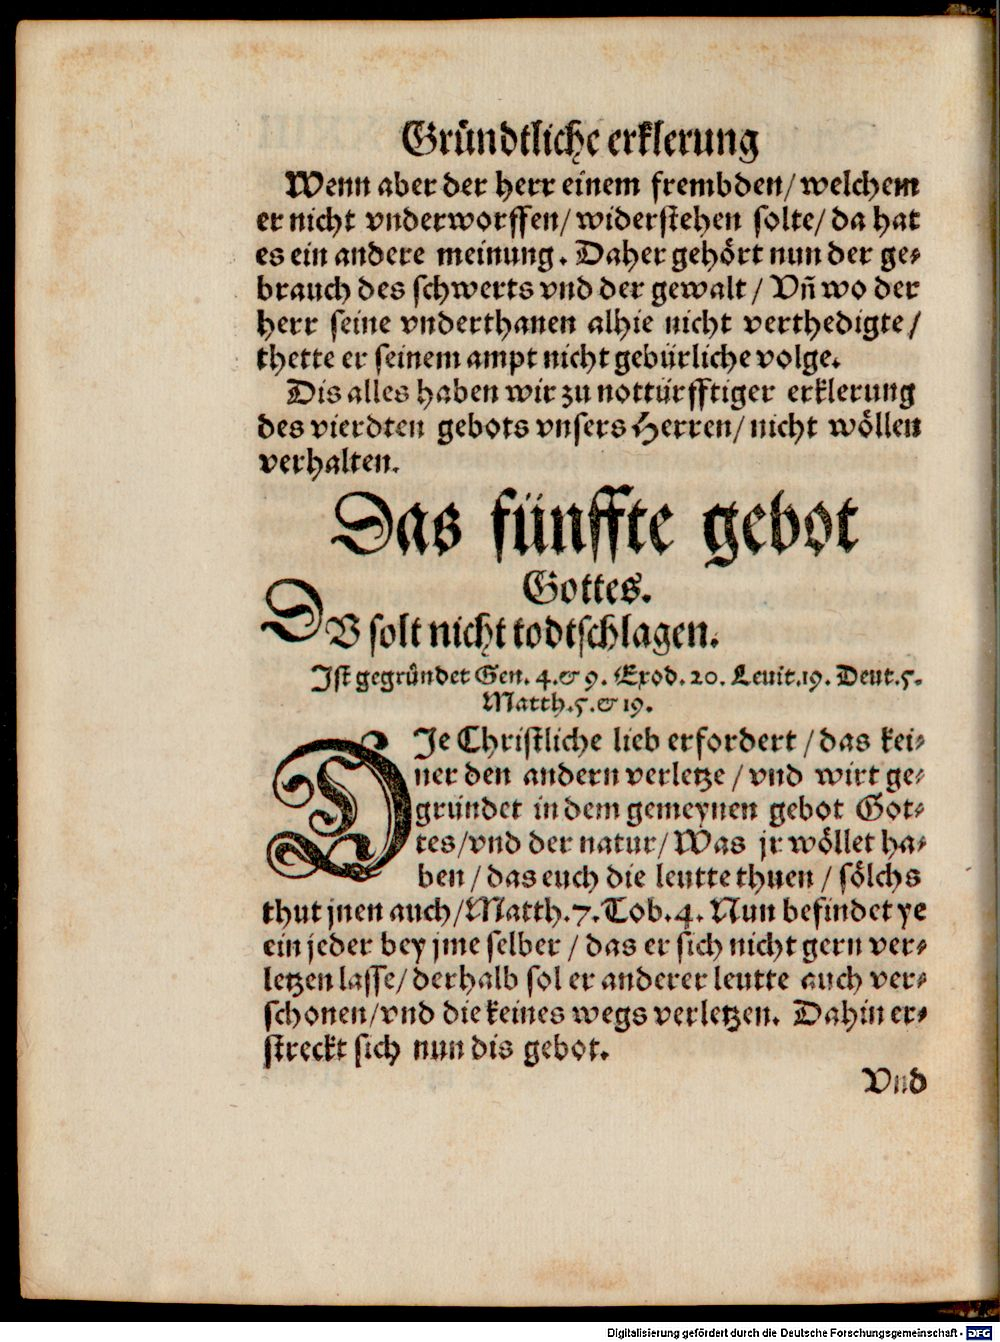 Gründtliche erklerung
Wenn aber der herr einem frembden/ welchem
er nicht vnderworffen/ widerstehen solte/ da hat
es ein andere meinung. Daher gehört nun der ge⸗
brauch des schwerts vnd der gewalt / Vñ wo der
herr seine vnderthanen alhie nicht verthedigte/
thette er seinem ampt nicht gebürliche volge.
Dis alles haben wir zu nottürfftiger erklerung
des vierdten gebots vnsers Herren/ nicht wöllen
verhalten.
Das fünffte gebot
Gottes.
DV solt nicht todtschlagen.
Ist gegründet Gen. 4. & 9. Exod. 20. Leuit. 19. Deut. 5.
Matth. 5. & 19.
DIe Christliche lieb erfordert / das kei⸗
ner den andern verletze / vnd wirt ge⸗
gründet in dem gemeynen gebot Got⸗
tes/ vnd der natur/ Was jr wöllet ha⸗
ben / das euch die leutte thuen / sölchs
thut jnen auch/ Matth. 7. Tob. 4. Nun befindet ye
ein jeder bey jme selber / das er sich nicht gern ver⸗
letzen lasse/ derhalb sol er anderer leutte auch ver⸗
schonen/ vnd die keines wegs verletzen. Dahin er⸗
streckt sich nun dis gebot.
Vnd
Digitalisierung gefördert durch die Deutsche Forschungsgemeinschaft - DFG